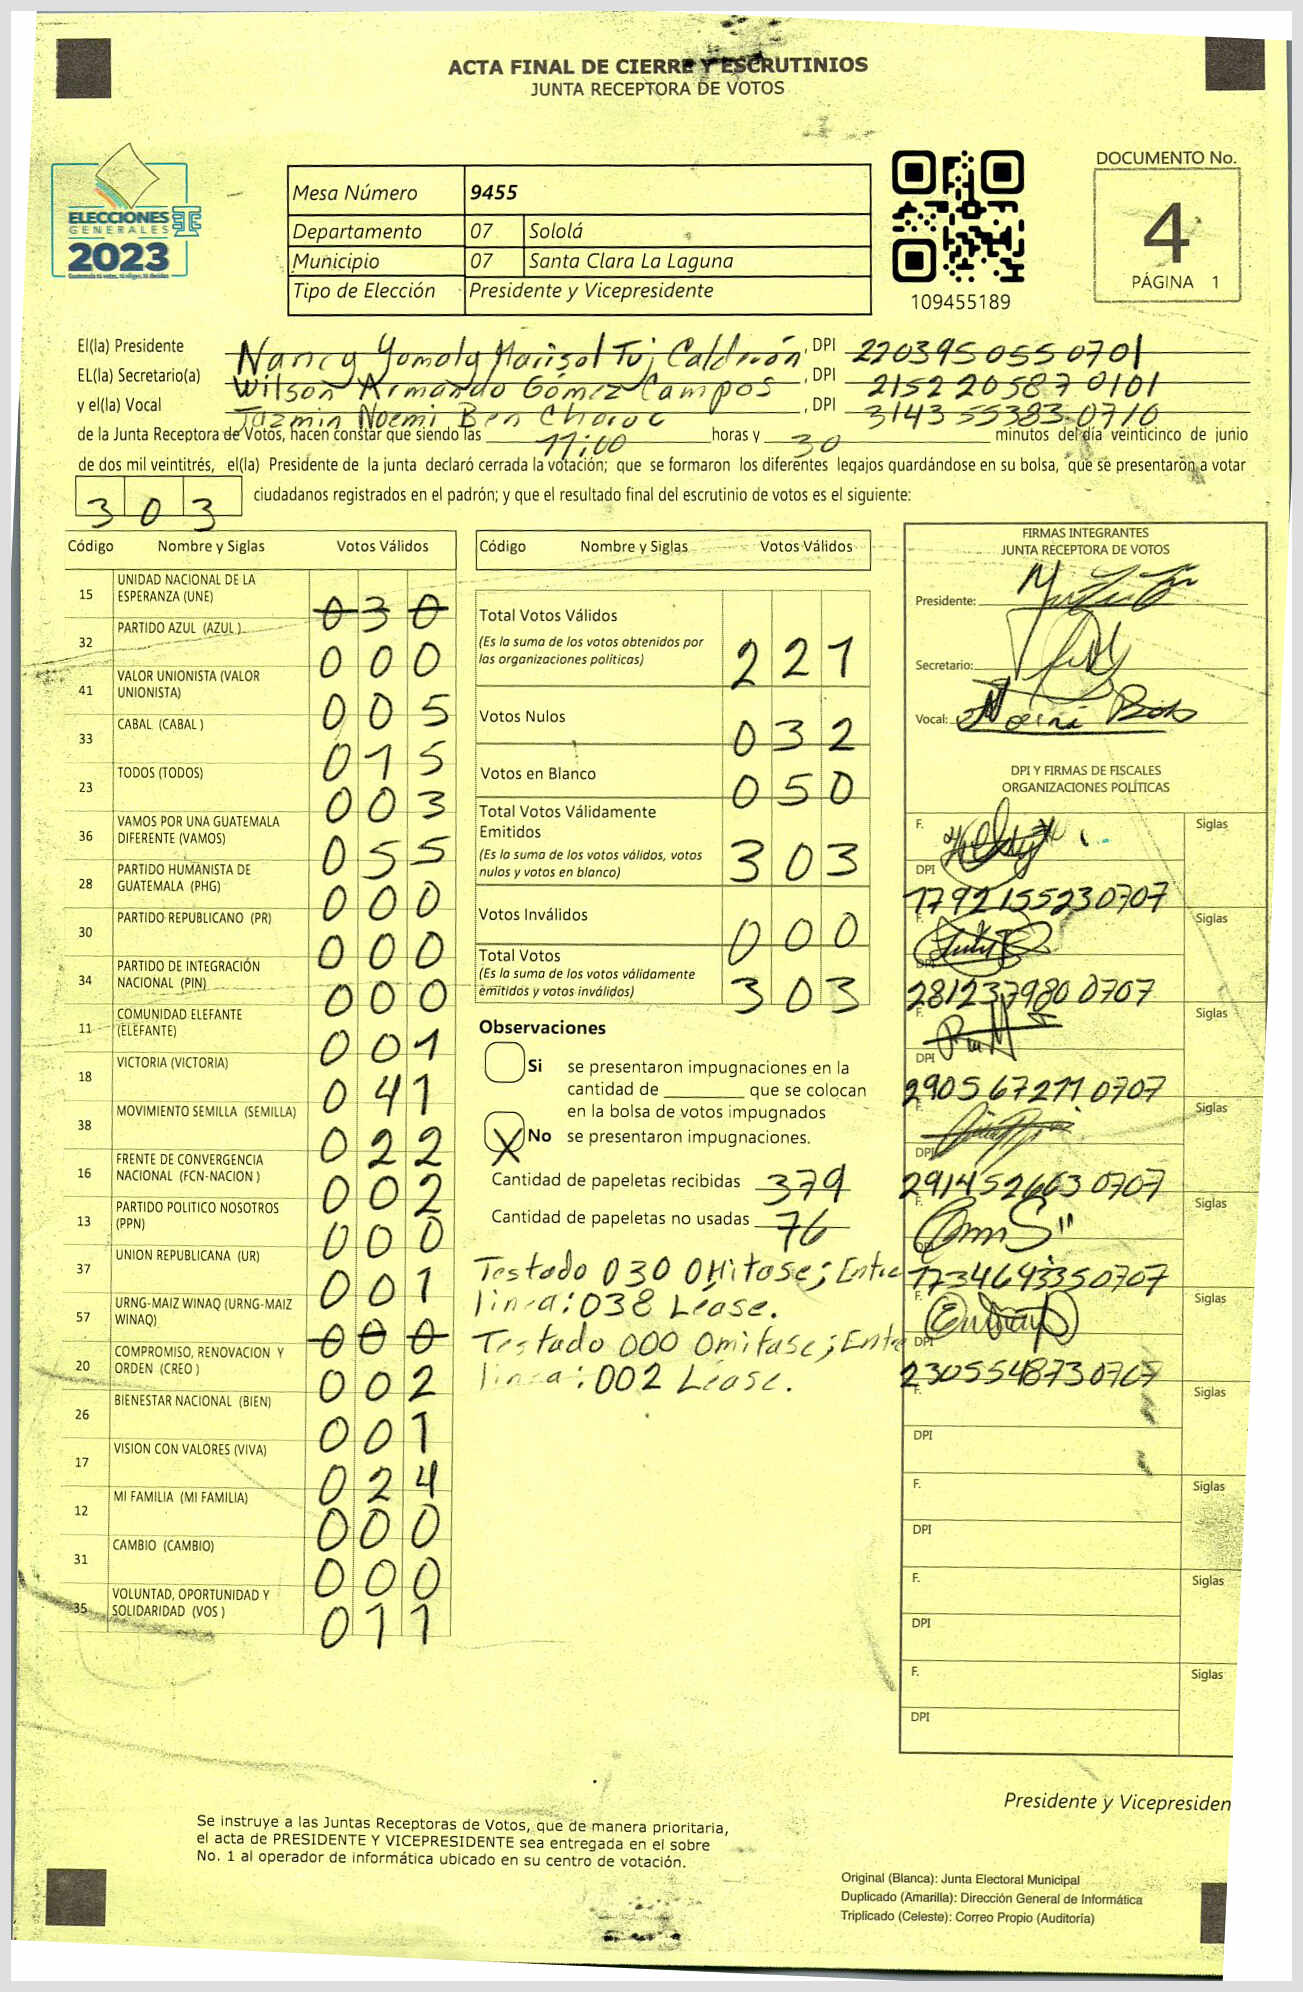 ACTA FINAL DE CIERRE Y ESCRUTINIOS
JUNTA RECEPTORA DE VOTOS
ELECCIONES
GENERALES
2023
Mesa Número 9455
Departamento 07 Sololá
Municipio 07 Santa Clara La Laguna
Tipo de Elección Presidente y Vicepresidente
109455189
DOCUMENTO No.
4
PÁGINA 1
El(la) Presidente Nancy Yomoly Marisol Tuj Calderón, DPI 220395055 0701
EL(la) Secretario(a) Wilson Armando Gómez Campos, DPI 2152 20587 0101
y el(la) Vocal Jazmin Noemi Ben, DPI 3143 55383 0710
de la Junta Receptora de Votos, hacen constar que siendo las 17:00 horas y 30 minutos del día veinticinco de junio
de dos mil veintitrés, el(la) Presidente de la junta declaró cerrada la votación; que se formaron los diferentes legajos guardándose en su bolsa, que se presentaron a votar
303 ciudadanos registrados en el padrón; y que el resultado final del escrutinio de votos es el siguiente:
Código Nombre y Siglas Votos Válidos
15 UNIDAD NACIONAL DE LA ESPERANZA (UNE) 030
32 PARTIDO AZUL (AZUL) 000
41 VALOR UNIONISTA (VALOR UNIONISTA) 005
33 CABAL (CABAL) 015
23 TODOS (TODOS) 003
36 VAMOS POR UNA GUATEMALA DIFERENTE (VAMOS) 055
28 PARTIDO HUMANISTA DE GUATEMALA (PHG) 000
30 PARTIDO REPUBLICANO (PR) 000
34 PARTIDO DE INTEGRACIÓN NACIONAL (PIN) 000
11 COMUNIDAD ELEFANTE (ELEFANTE) 001
18 VICTORIA (VICTORIA) 041
38 MOVIMIENTO SEMILLA (SEMILLA) 022
16 FRENTE DE CONVERGENCIA NACIONAL (FCN-NACION) 002
13 PARTIDO POLITICO NOSOTROS (PPN) 000
37 UNION REPUBLICANA (UR) 001
57 URNG-MAIZ WINAQ (URNG-MAIZ WINAQ) 000
20 COMPROMISO, RENOVACION Y ORDEN (CREO) 002
26 BIENESTAR NACIONAL (BIEN) 001
17 VISION CON VALORES (VIVA) 024
12 MI FAMILIA (MI FAMILIA) 000
31 CAMBIO (CAMBIO) 000
35 VOLUNTAD, OPORTUNIDAD Y SOLIDARIDAD (VOS) 011
Código Nombre y Siglas Votos Válidos
Total Votos Válidos
(Es la suma de los votos obtenidos por
las organizaciones políticas) 221
Votos Nulos 032
Votos en Blanco 050
Total Votos Válidamente
Emitidos
(Es la suma de los votos válidos, votos
nulos y votos en blanco) 303
Votos Inválidos 000
Total Votos
(Es la suma de los votos válidamente
emitidos y votos inválidos) 303
Observaciones
Si se presentaron impugnaciones en la
cantidad de ________ que se colocan
en la bolsa de votos impugnados
X No se presentaron impugnaciones.
Cantidad de papeletas recibidas 379
Cantidad de papeletas no usadas 76
Testado 030 Omitase; Entre
linea: 038 Léase.
Testado 000 Omitase; Entre
linea: 002 Léase.
FIRMAS INTEGRANTES
JUNTA RECEPTORA DE VOTOS
Presidente:
Secretario:
Vocal:
DPI Y FIRMAS DE FISCALES
ORGANIZACIONES POLÍTICAS
F. Siglas
DPI
1792155230707
F. Siglas
DPI
281237980 0707
F. Siglas
DPI
2905 67271 0707
F. Siglas
DPI
291452663 0707
F. Siglas
DPI
1734643350707
F. Siglas
DPI
2305548730707
F. Siglas
DPI
F. Siglas
DPI
F. Siglas
DPI
F. Siglas
DPI
Presidente y Vicepresiden
Se instruye a las Juntas Receptoras de Votos, que de manera prioritaria,
el acta de PRESIDENTE Y VICEPRESIDENTE sea entregada en el sobre
No. 1 al operador de informática ubicado en su centro de votación.
Original (Blanca): Junta Electoral Municipal
Duplicado (Amarilla): Dirección General de Informática
Triplicado (Celeste): Correo Propio (Auditoría)